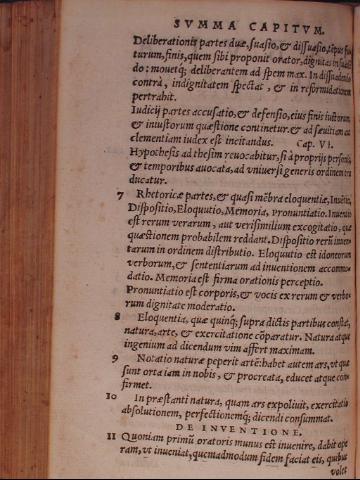 SVMMA CAPITVM.
Deliberationis partes duæ, suasio, & dissuasio, tẽpus
turum, finis, quem sibi proponit orator, dignitas in
do: mouetq; deliberantem ad spem max. In dissuadendo
contrà, indignitatem spectat, & in reformidationem
pertrahit.
Iudicij partes accusatio, & defensio, eius finis iustorum
& iniustorum quæstione continetur. & ad sæuitiam
clementiam iudex est incitandus. Cap. VI.
Hypothesis ad thesim reuocabitur, si à proprijs personis
& temporibus auocata, ad vniuersi generis ordinem
ducatur.
7 Rhetoricæ partes, & quasi mẽbra eloquẽtiæ, Inuẽtio,
Dispositio, Eloquutio, Memoria, Pronuntiatio. Inuentio
est rerum verarum, aut verisimilium excogitatio, quæ
quæstionem probabilem reddant. Dispositio rerũ inuen-
tarum in ordinem distributio. Eloquutio est idoneorum
verborum, & sententiarum ad inuentionem accommo-
datio. Memoria est firma orationis perceptio.
Pronuntiatio est corporis, & vocis ex rerum & verbo-
rum dignitate moderatio.
8 Eloquentia, quæ quinq; supra dictis partibus constat,
natura, arte, & exercitatione cõparatur. Natura atque
ingenium ad dicendum vim affert maximam.
9 Notatio naturæ peperit artẽ: habet autem ars, vt quæ
sunt orta iam in nobis, & procreata, educet atque con-
firmet.
10 In præstanti natura, quam ars expoliuit, exercitatio
absolutionem, perfectionemq; dicendi consummat.
DE INVENTIONE.
11 Quoniam primũ oratoris munus est inuenire, dabit
ram, vt inueniat, quemadmodum fidem faciat eis, quibus
volet